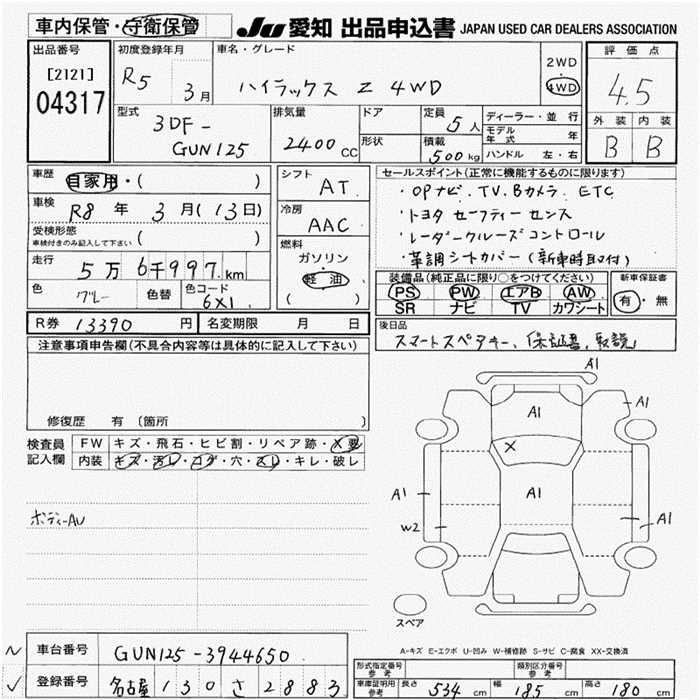 車内保管・守衛保管 JU 愛知 出品申込書 JAPAN USED CAR DEALERS ASSOCIATION
出品番号
[2121]
04317
初度登録年月
R5 3月
車名・グレード
ハイラックス Z 4WD
2WD
・
4WD
評価点
4.5
外装 内装
B B
型式
3DF-
GUN125
排気量
2400 CC
ドア
形状
定員 5人
積載 500kg
ディーラー・並行
モデル年式 年
ハンドル 左・右
車歴 自家用・( )
車検 R8年 3月(13日)
受検形態
車検付きのみ記入して下さい ( )
走行 5万6千997km
色 グレー 色替 色コード 6X1
R券 13390円 名変期限 月 日
シフト AT
冷房 AAC
燃料
ガソリン
軽油
( )
セールスポイント(正常に機能するものに限ります)
・OPナビ、TV、Bカメラ、ETC
・トヨタ セーフティーセンス
・レーダークルーズコントロール
・革調シートカバー(新車時取付)
装備品(純正品に限り○をつけてください)
PS PW エアB AW
SR ナビ TV カワシート
新車保証書
有・無
後日品
スマートスペアキー、保証書、取説
注意事項申告欄(不具合内容等は具体的に記入して下さい)
修復歴 有 〔箇所 〕
検査員
記入欄
FW キズ・飛石・ヒビ割・リペア跡・X要
内装 キズ・汚レ・コゲ・穴・スレ・キレ・破レ
ボディーAU
A1
A1
A1
X
A1
A1
W2
A1
スペア
A-キズ E-エクボ U-凹み W-補修跡 S-サビ C-腐食 XX-交換済
車台番号 GUN125-3944650
登録番号 名古屋 130 さ 2883
形式指定番号
参考
類別区分番号
参考
車庫証明用
参考
長さ 534cm 幅 185cm 高さ 180cm